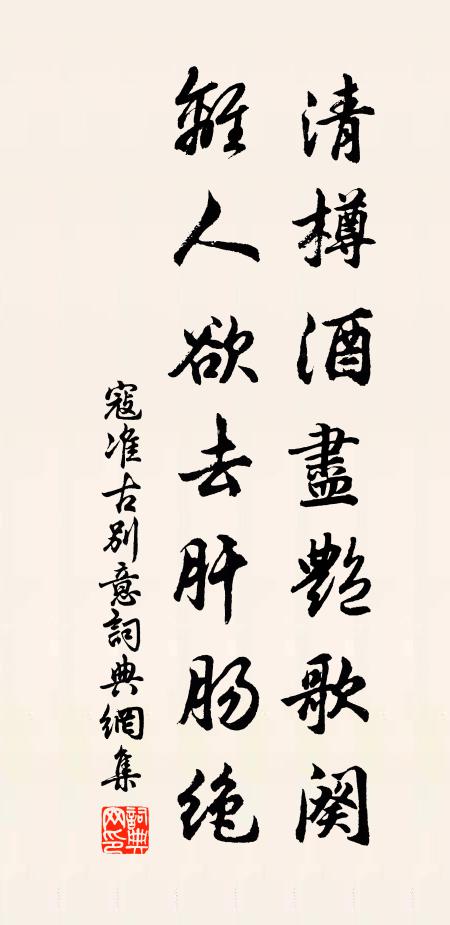 清樽酒盡艷歌闋
離人欲去肝腸絶
寇准古別意詞典網集
詞典網印